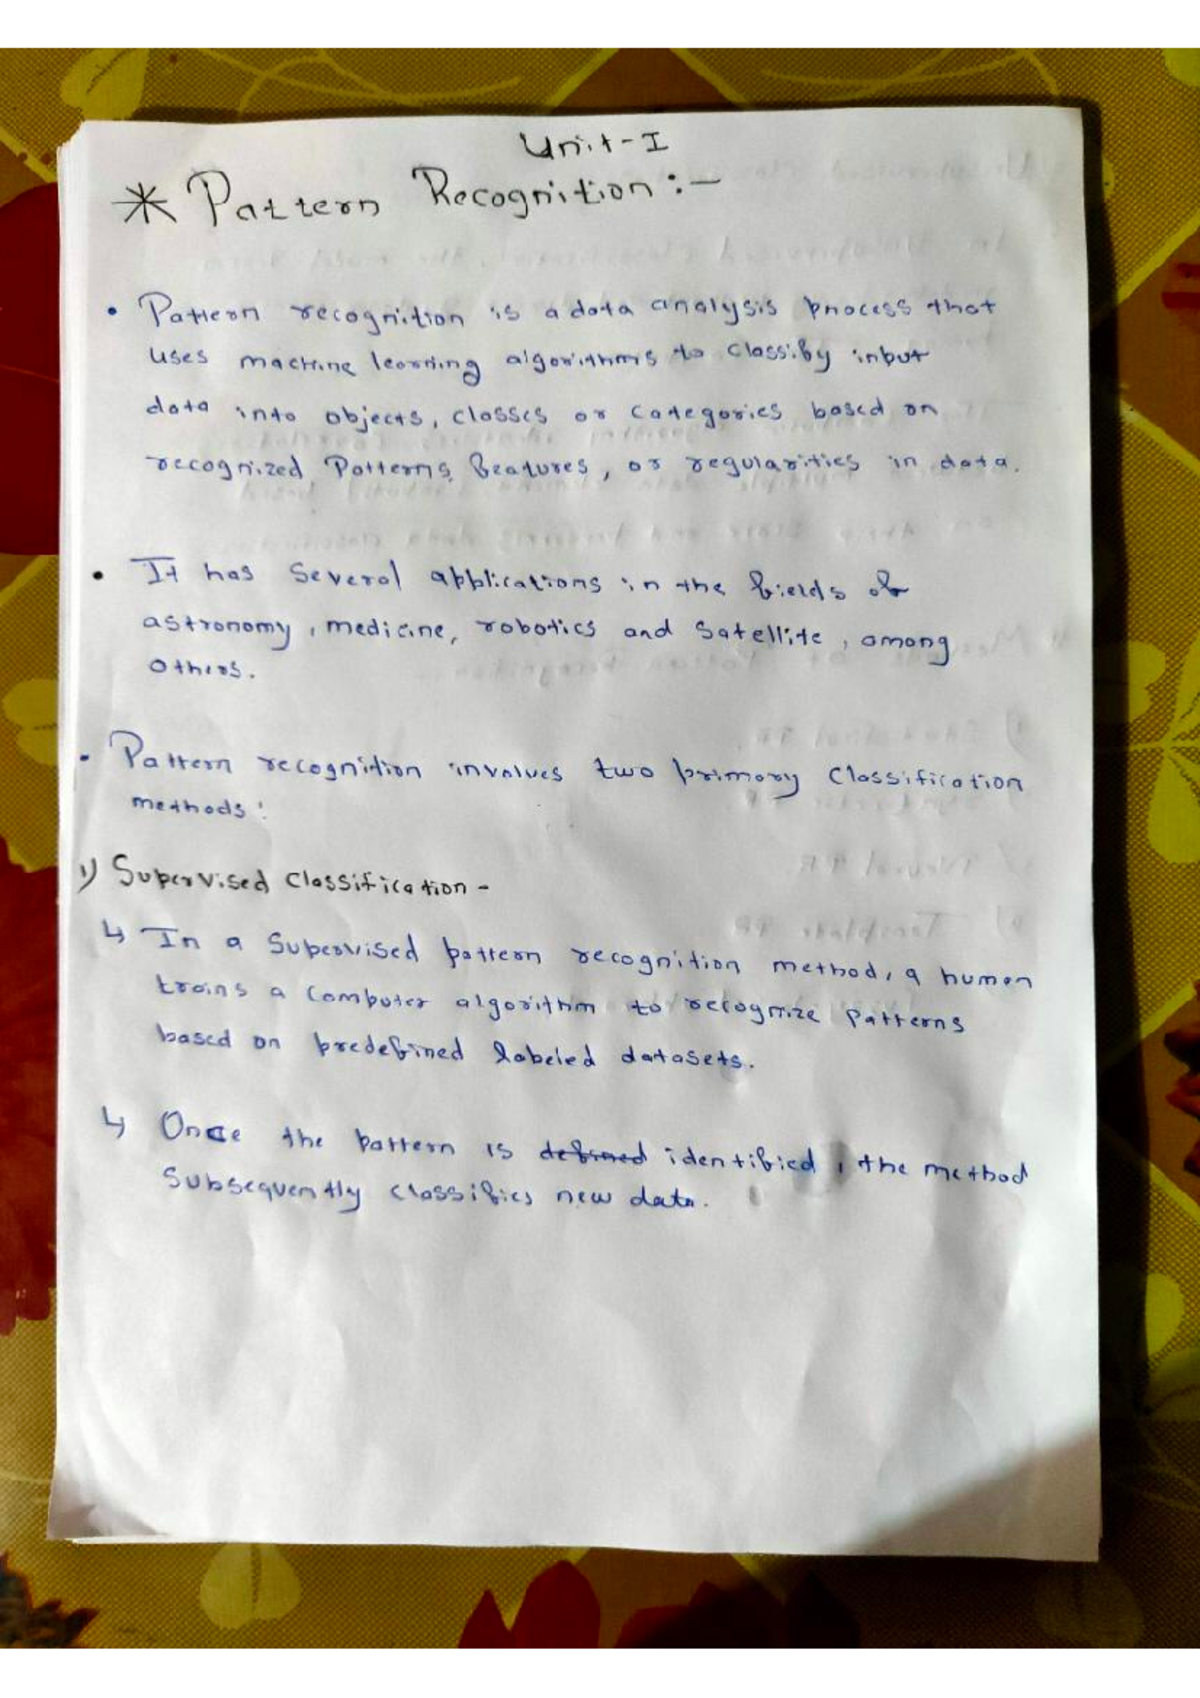 Unit-I
* Pattern Recognition :-
• Pattern recognition is a data analysis process that
uses machine learning algorithms to classify input
data into objects, classes or categories based on
recognized Patterns, features, or regularities in data.
• It has several applications in the fields of
astronomy, medicine, robotics and Satellite, among
Others.
• Pattern recognition involves two primary classification
methods:
1) Supervised Classification -
↳ In a Supervised pattern recognition method, a human
trains a Computer algorithm to recognize Patterns
based on predefined labeled datasets.
↳ Once the pattern is defined identified, the method
Subsequently classifies new data.